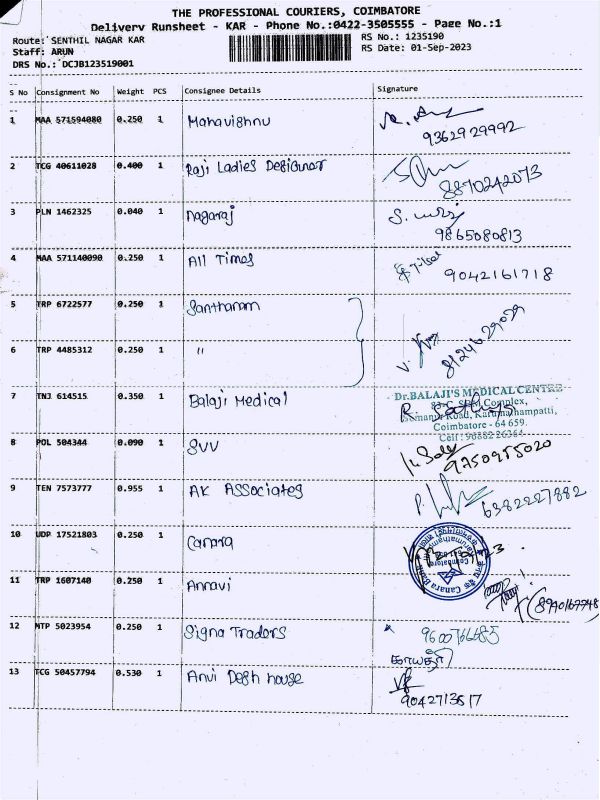 THE PROFESSIONAL COURIERS, COIMBATORE
Delivery Runsheet - KAR - Phone No.:0422-3505555 - Page No.:1
Route: SENTHIL NAGAR KAR
RS No.: 1235190
Staff: ARUN
RS Date: 01-Sep-2023
DRS No.: DCJB123519001
S No Consignment No Weight PCS Consignee Details Signature
1 MAA 571594080 0.250 1 Mahavishnu
9362929992
2 TCG 40611028 0.400 1 Raji Ladies Designer
8870242073
3 PLN 1462325 0.040 1 Nagaraj
9865080813
4 MAA 571140090 0.250 1 All Times
9042161718
5 TRP 6722577 0.250 1 Santharam
6 TRP 4485312 0.250 1 "
7 TNJ 614515 0.350 1 Balaji Medical
Dr.BALAJI'S MEDICAL CENTRE
Complex,
Road, Karumathampatti,
Coimbatore - 64 659.
Cell : 90882 26364
8 POL 504344 0.090 1 SVV
9750955020
9 TEN 7573777 0.955 1 AK Associates
6382227882
10 UDP 17521803 0.250 1 Canara
Canara Bank
Coimbatore
11 TRP 1607140 0.250 1 Annavi
12 NTP 5023954 0.250 1 Signa Traders
காயத்ரி
13 TCG 50457794 0.530 1 Anvi Desh house
9042713617